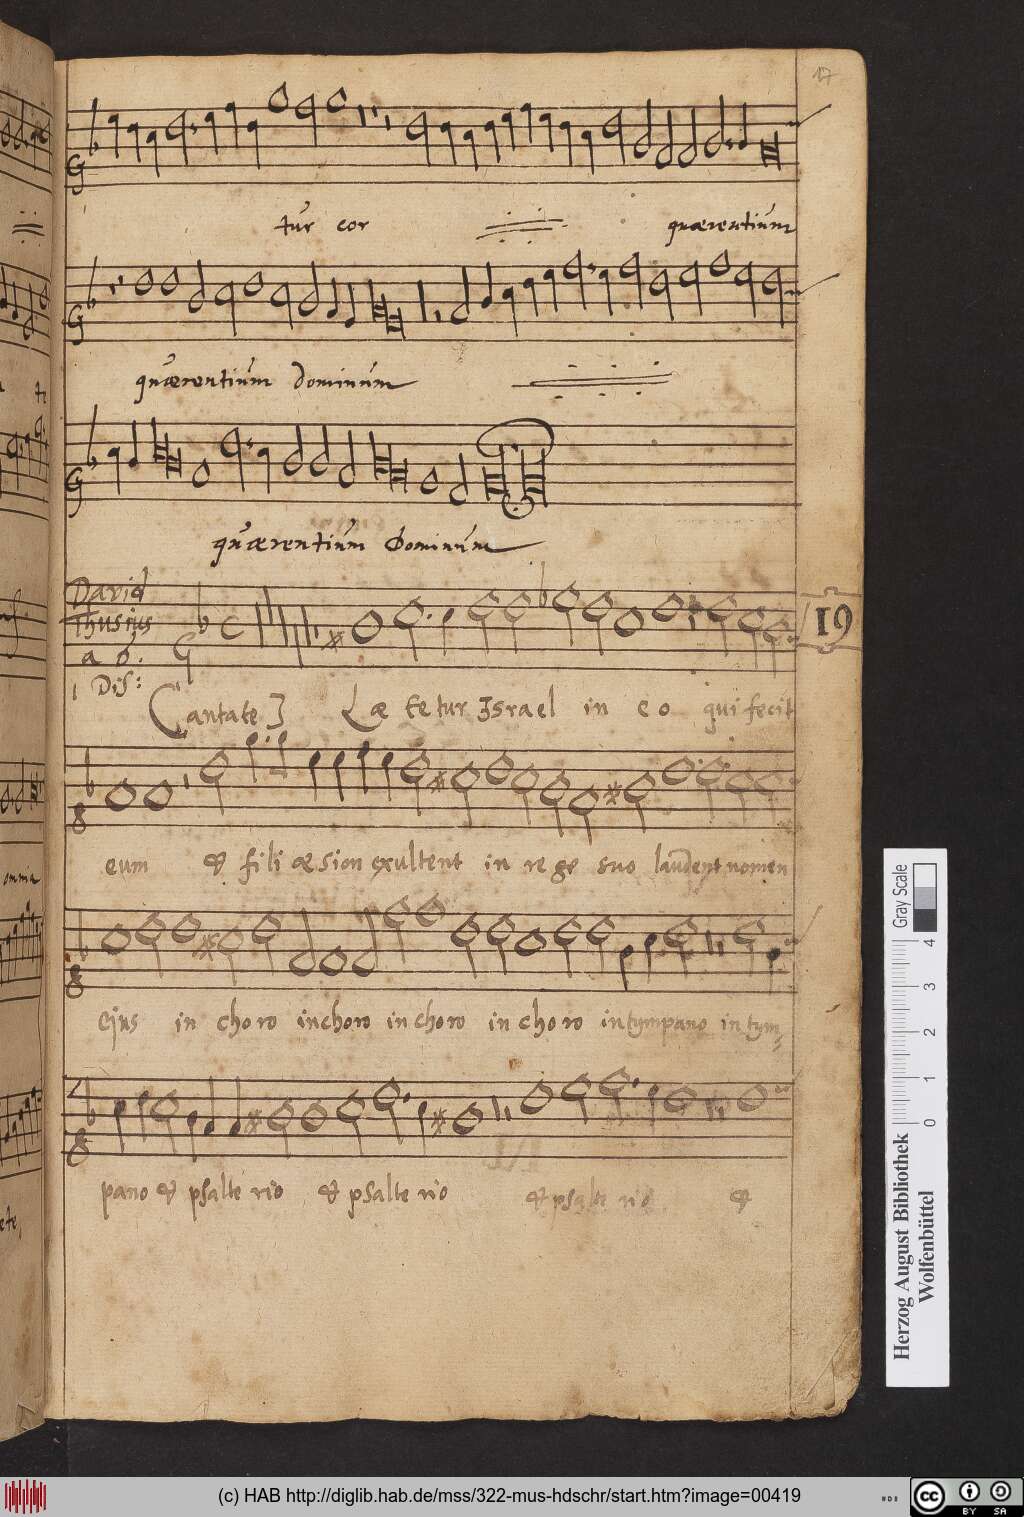 17
tur cor quærentium
quærentium dominum
quærentium Dominum
David
Thusius
a 6.
1 Dis:
19
Cantate] Læ te tur Israel in e o qui fecit
eum & fili æ sion exultent in re ge suo laudent nomen
ejus in cho ro in choro in choro in cho ro in tympano in tym=
pano & psalte rio & psalte rio & psalte rio &
Gray Scale
0 1 2 3 4
Herzog August Bibliothek
Wolfenbüttel
(c) HAB http://diglib.hab.de/mss/322-mus-hdschr/start.htm?image=00419
cc BY SA